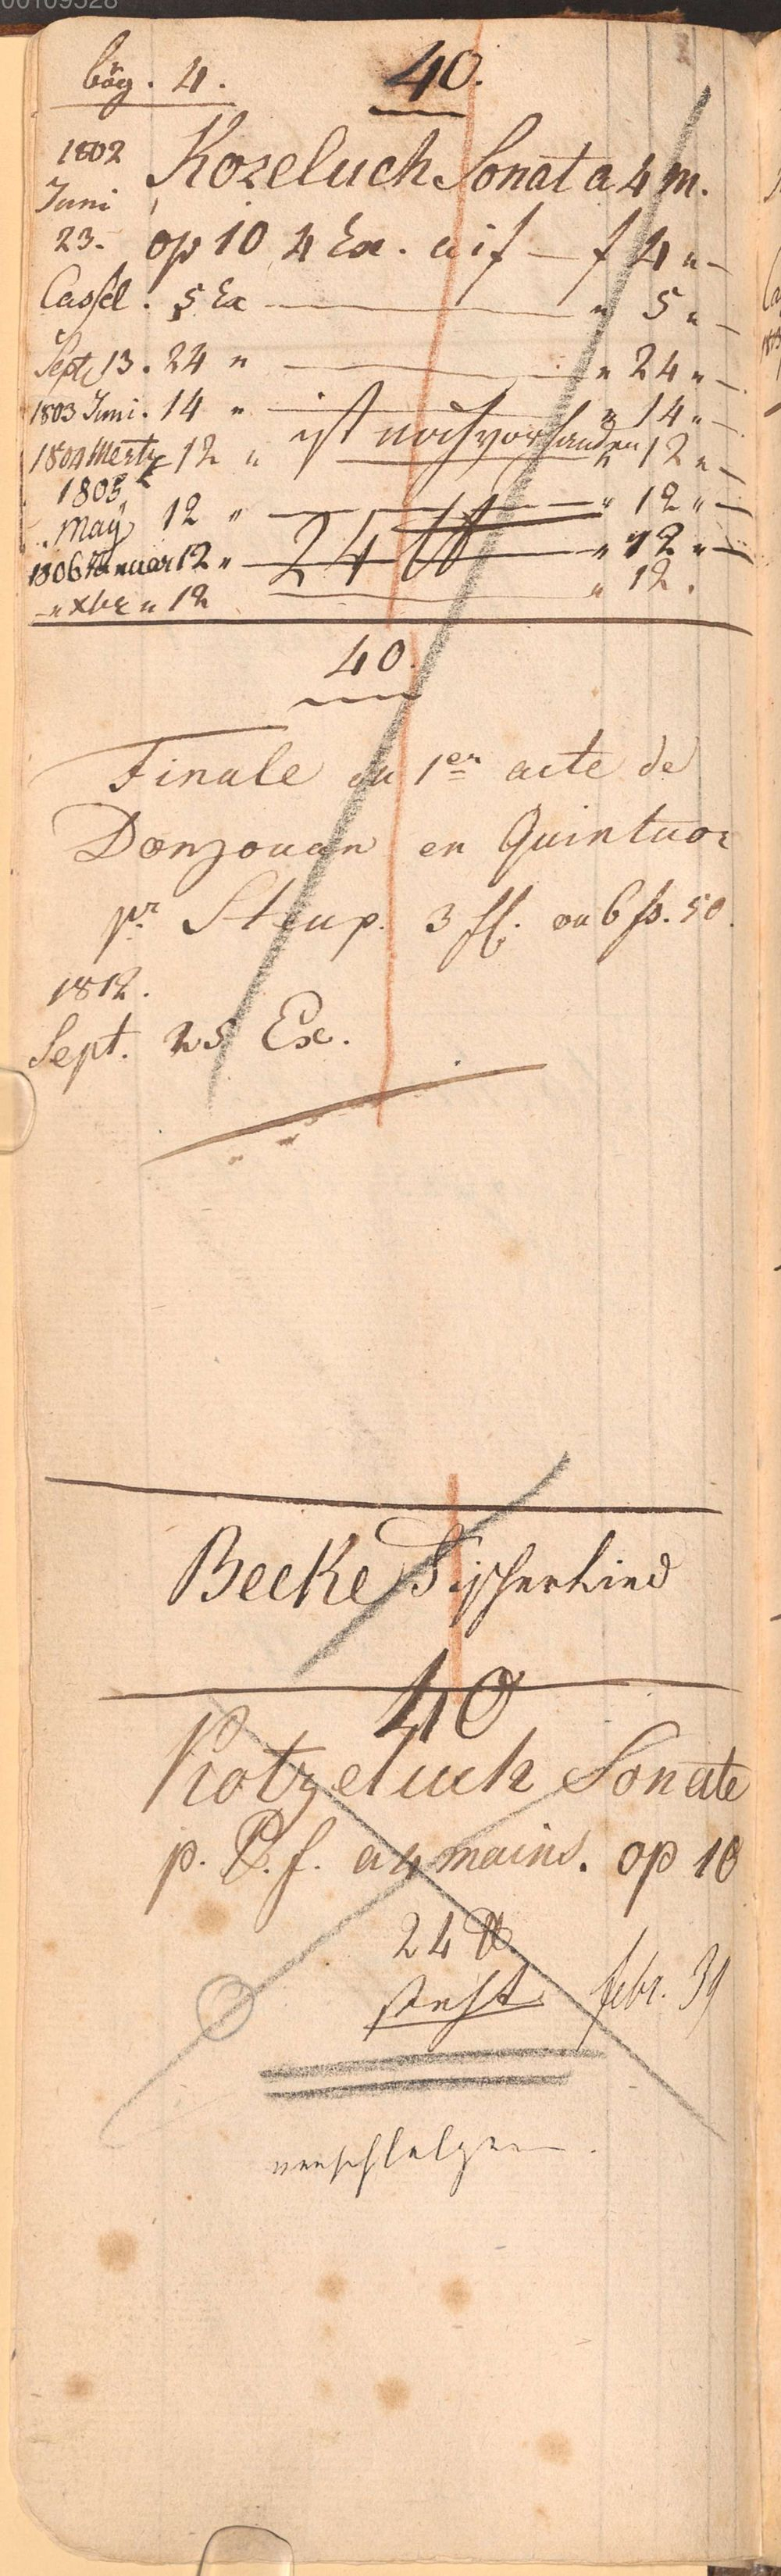 bög. 4. 40.
1802 Kozeluch Sonat a 4 m.
Juni
23. op 10 4 Ex. a if — f 4 " —
Cassel. 5 Ex — " 5 " —
Sept 13. 24 " — " 24 " —
1803 Juni. 14 " — " 14 " —
ist noch vorhanden
1804 Mertz 12 " — " 12 " —
1805
May 12 " — " 12 " —
24
1806 Januar 12 " — " 12 " —
— " xbr " 12 — " 12.
40.
Finale du 1er acte de
Donjouan en Quintuor
pr Stup. 3 ff. ou 6 fs. 50.
1812.
Sept. 25 Ex.
Becke Fischerlied
40
Kotzeluck Sonate
p. P. f. a 4 mains. op 10
24
steht febr. 39